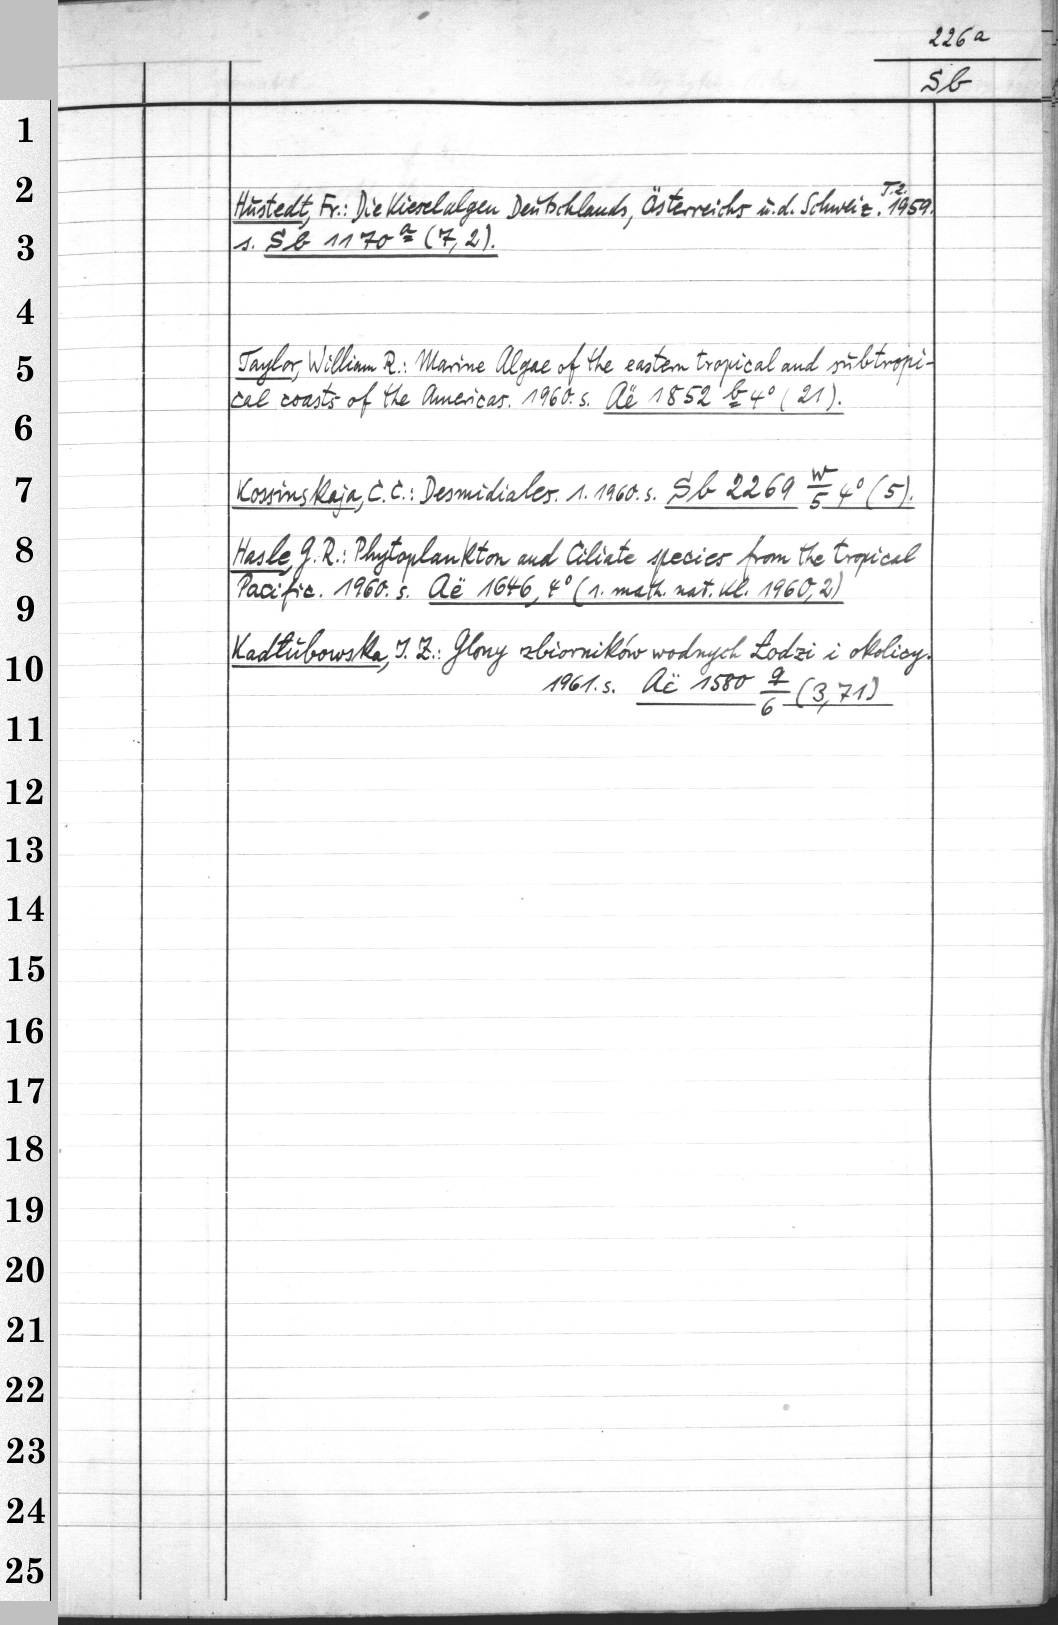 226a
Sb
1
2
Hustedt, Fr.: Die Kieselalgen Deutschlands, Österreichs u. d. Schweiz. T.2. 1959.
3
s. Sb 1170 a (7,2).
4
5
Taylor, William R.: Marine Algae of the eastern tropical and subtropi-
cal coasts of the Americas. 1960. s. Aë 1852 b 4° (21).
6
7
Kossinskaja, C. C.: Desmidiales. 1. 1960. s. Sb 2269 w/5 4° (5).
8
Hasle, G. R.: Phytoplankton and Ciliate species from the tropical
Pacific. 1960. s. Aë 1646, 4° (1. math. nat. Kl. 1960,2)
9
Kadłubowska, J. Z.: Glony zbiorników wodnych Łodzi i okolicy.
10
1961. s. Aë 1580 q/6 (3,71)
11
12
13
14
15
16
17
18
19
20
21
22
23
24
25